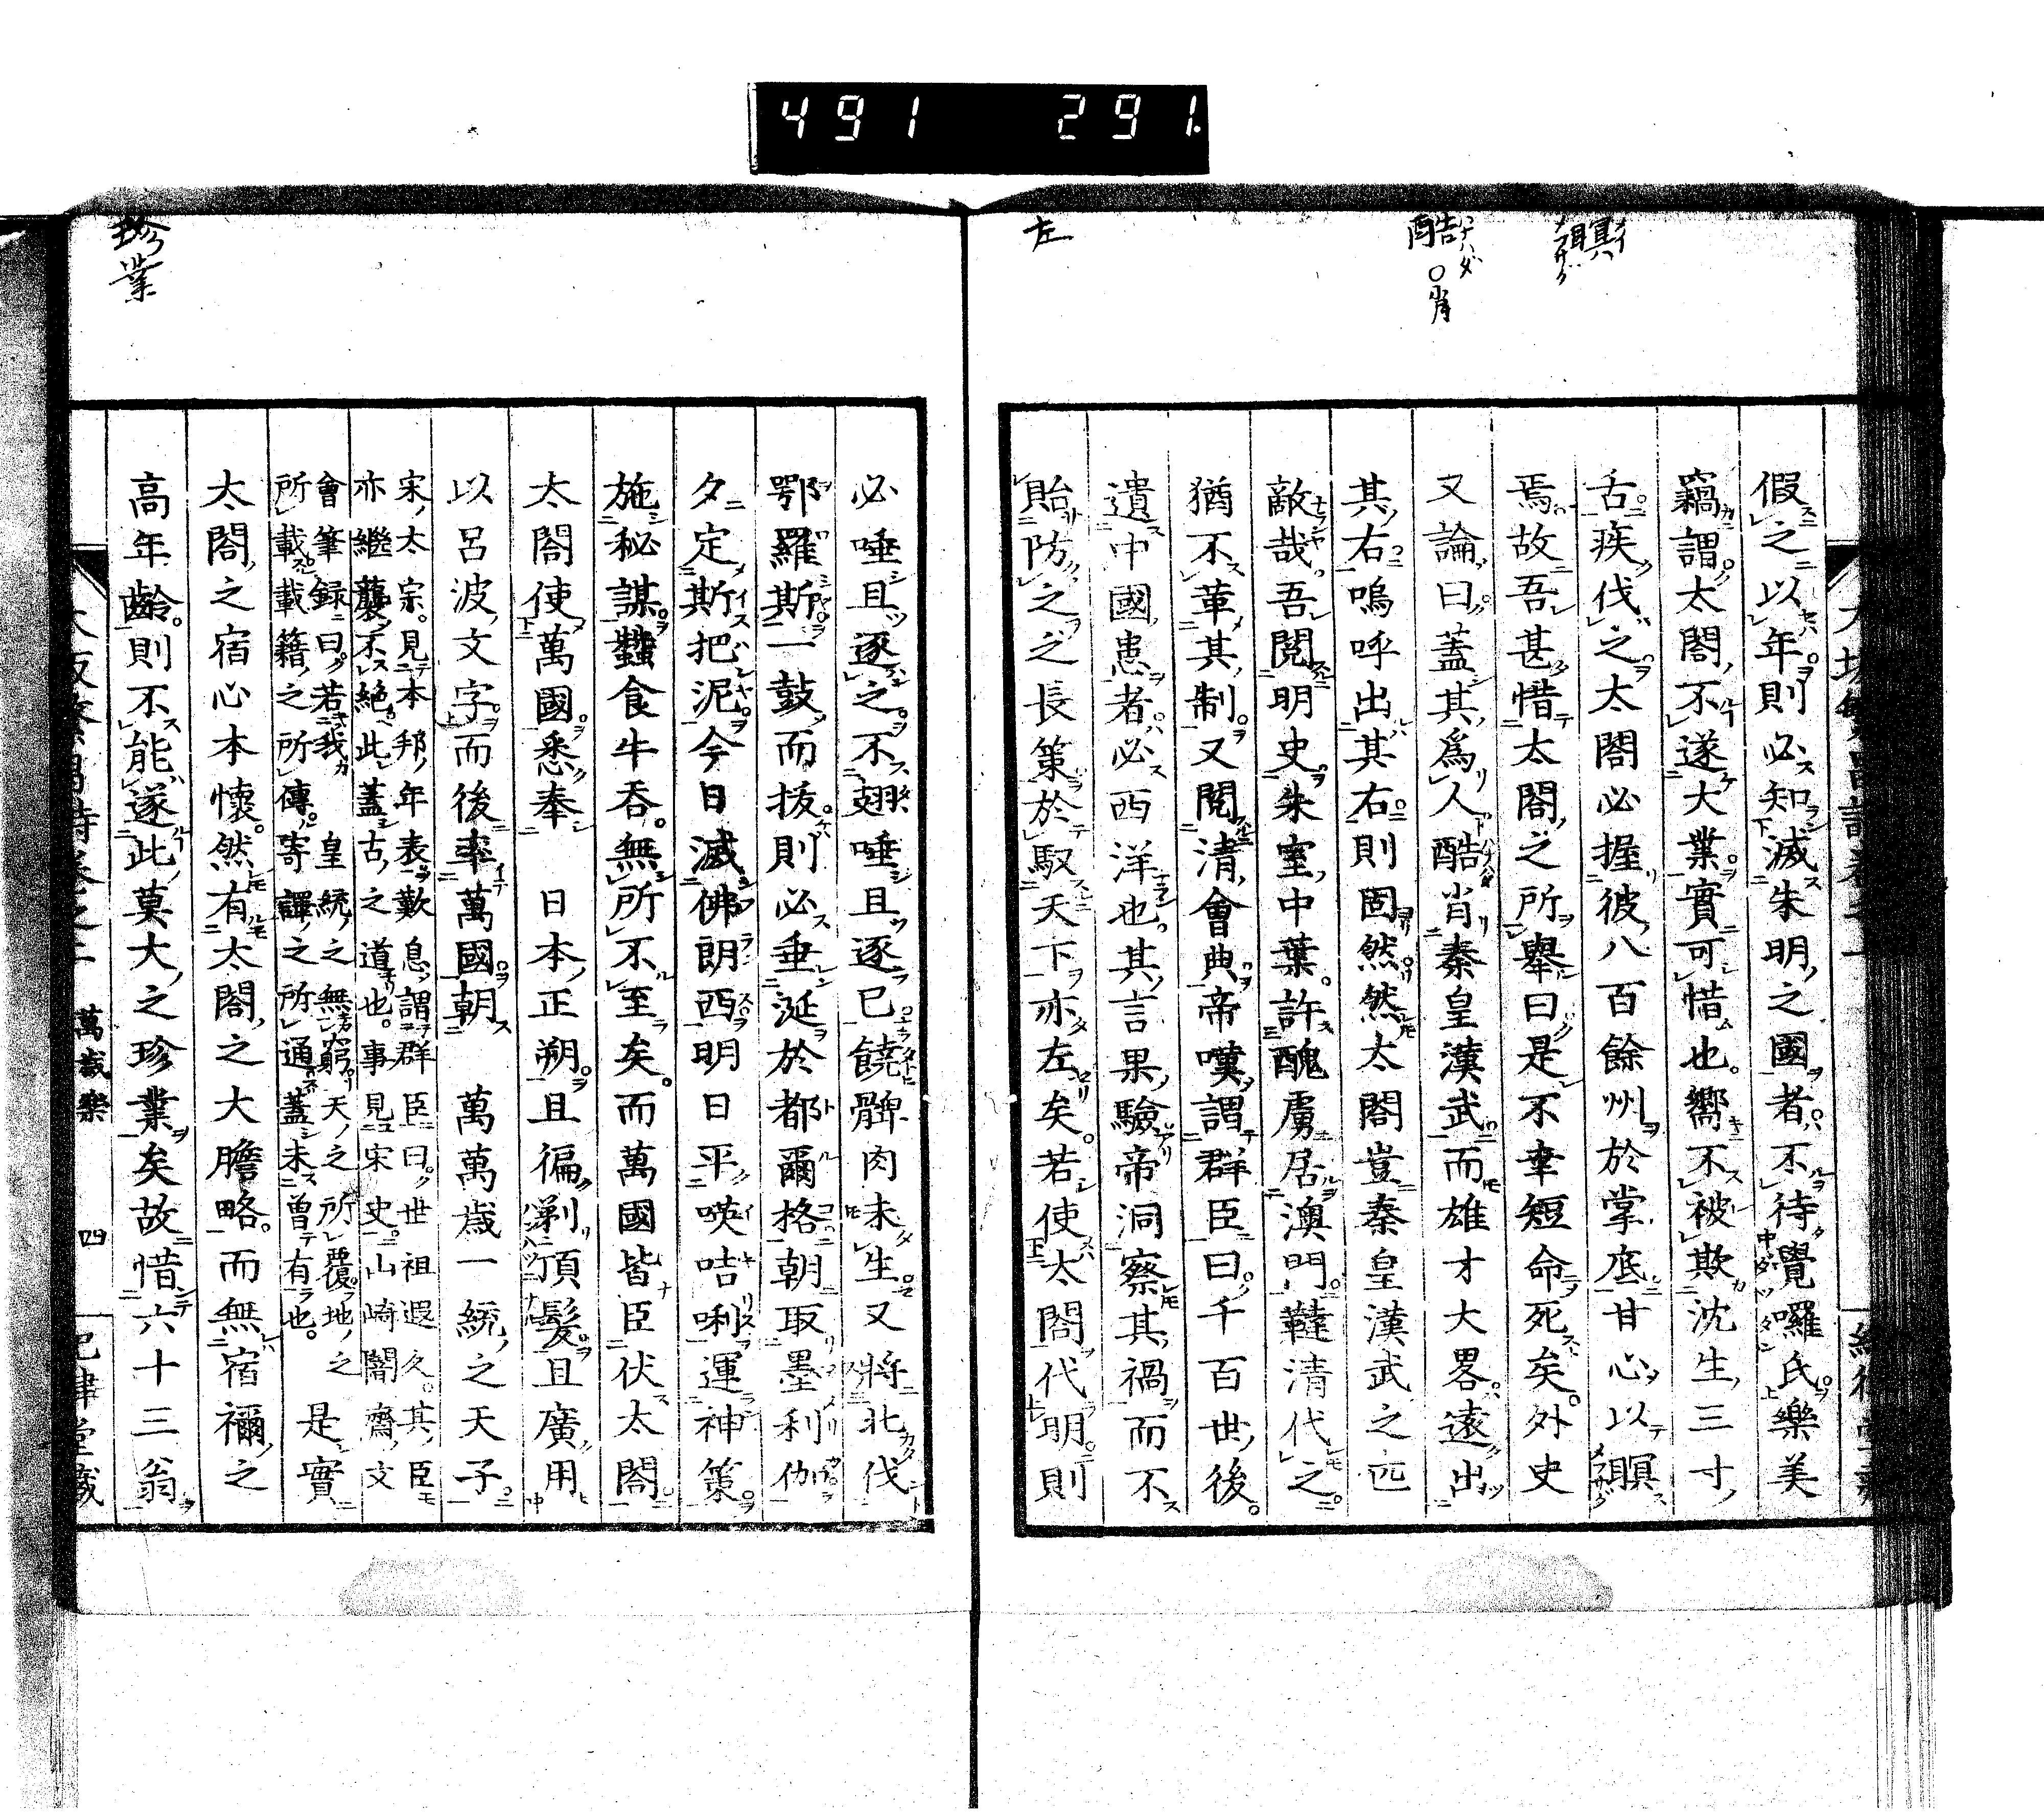 491 291.
瞑
酷 ○肖
左
假之以年則必知滅朱明之國者不待覺囉氏樂美
竊謂太閤不遂大業實可惜也嚮不被欺沈生三寸
舌疾伐之太閤必握彼八百餘州於掌底甘心以瞑
焉故吾甚惜太閤之所舉曰是不幸短命死矣外史
又論曰蓋其爲人酷肖秦皇漢武而雄才大畧遠出
其右嗚呼出其右則固然然太閤豈秦皇漢武之匹
敵哉吾閱明史朱室中葉許醜虜居澳門韃清代之
猶不革其制又閱清會典帝嘆謂群臣曰千百世後
遺中國患者必西洋也其言果驗帝洞察其禍而不
貽防之之長策於馭天下亦左矣若使太閤代明則
珍業
必唾且逐之不翅唾且逐已饒髀肉未生又將北伐
鄂羅斯一鼓而拔則必垂涎於都爾格朝取墨利伽
夕定斯把泥今日滅佛朗西明日平暎咭唎運神策
施秘謀蠶食牛吞無所不至矣而萬國皆臣伏太閤
太閤使萬國悉奉 日本正朔且徧剃頂髮且廣用
以呂波文字而後率萬國朝 萬萬歲一統之天子
宋太宗見本邦年表歎息謂群臣曰世祖遐久其臣
亦繼襲不絶此蓋古之道也事見宋史山崎闇齋文
會筆録曰若我 皇統之無窮天之所覆地之
所載載籍之所傳寄譯之所通蓋未曽有也 是實
太閤之宿心本懷然有太閤之大膽略而無宿禰之
高年齡則不能遂此莫大之珍業矣故惜六十三翁
萬歲樂 四